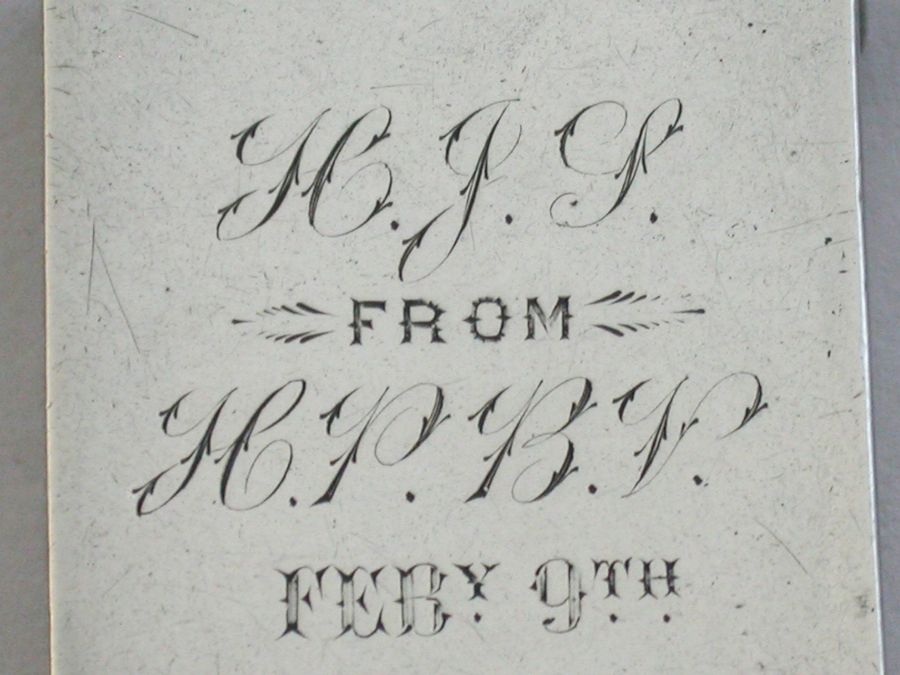 H. J. S.
FROM
H. P. B. V.
FEBY 9TH